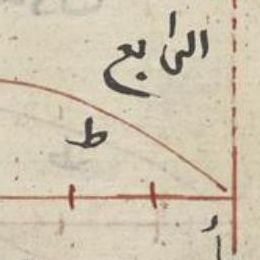 الرابع
ط
أ